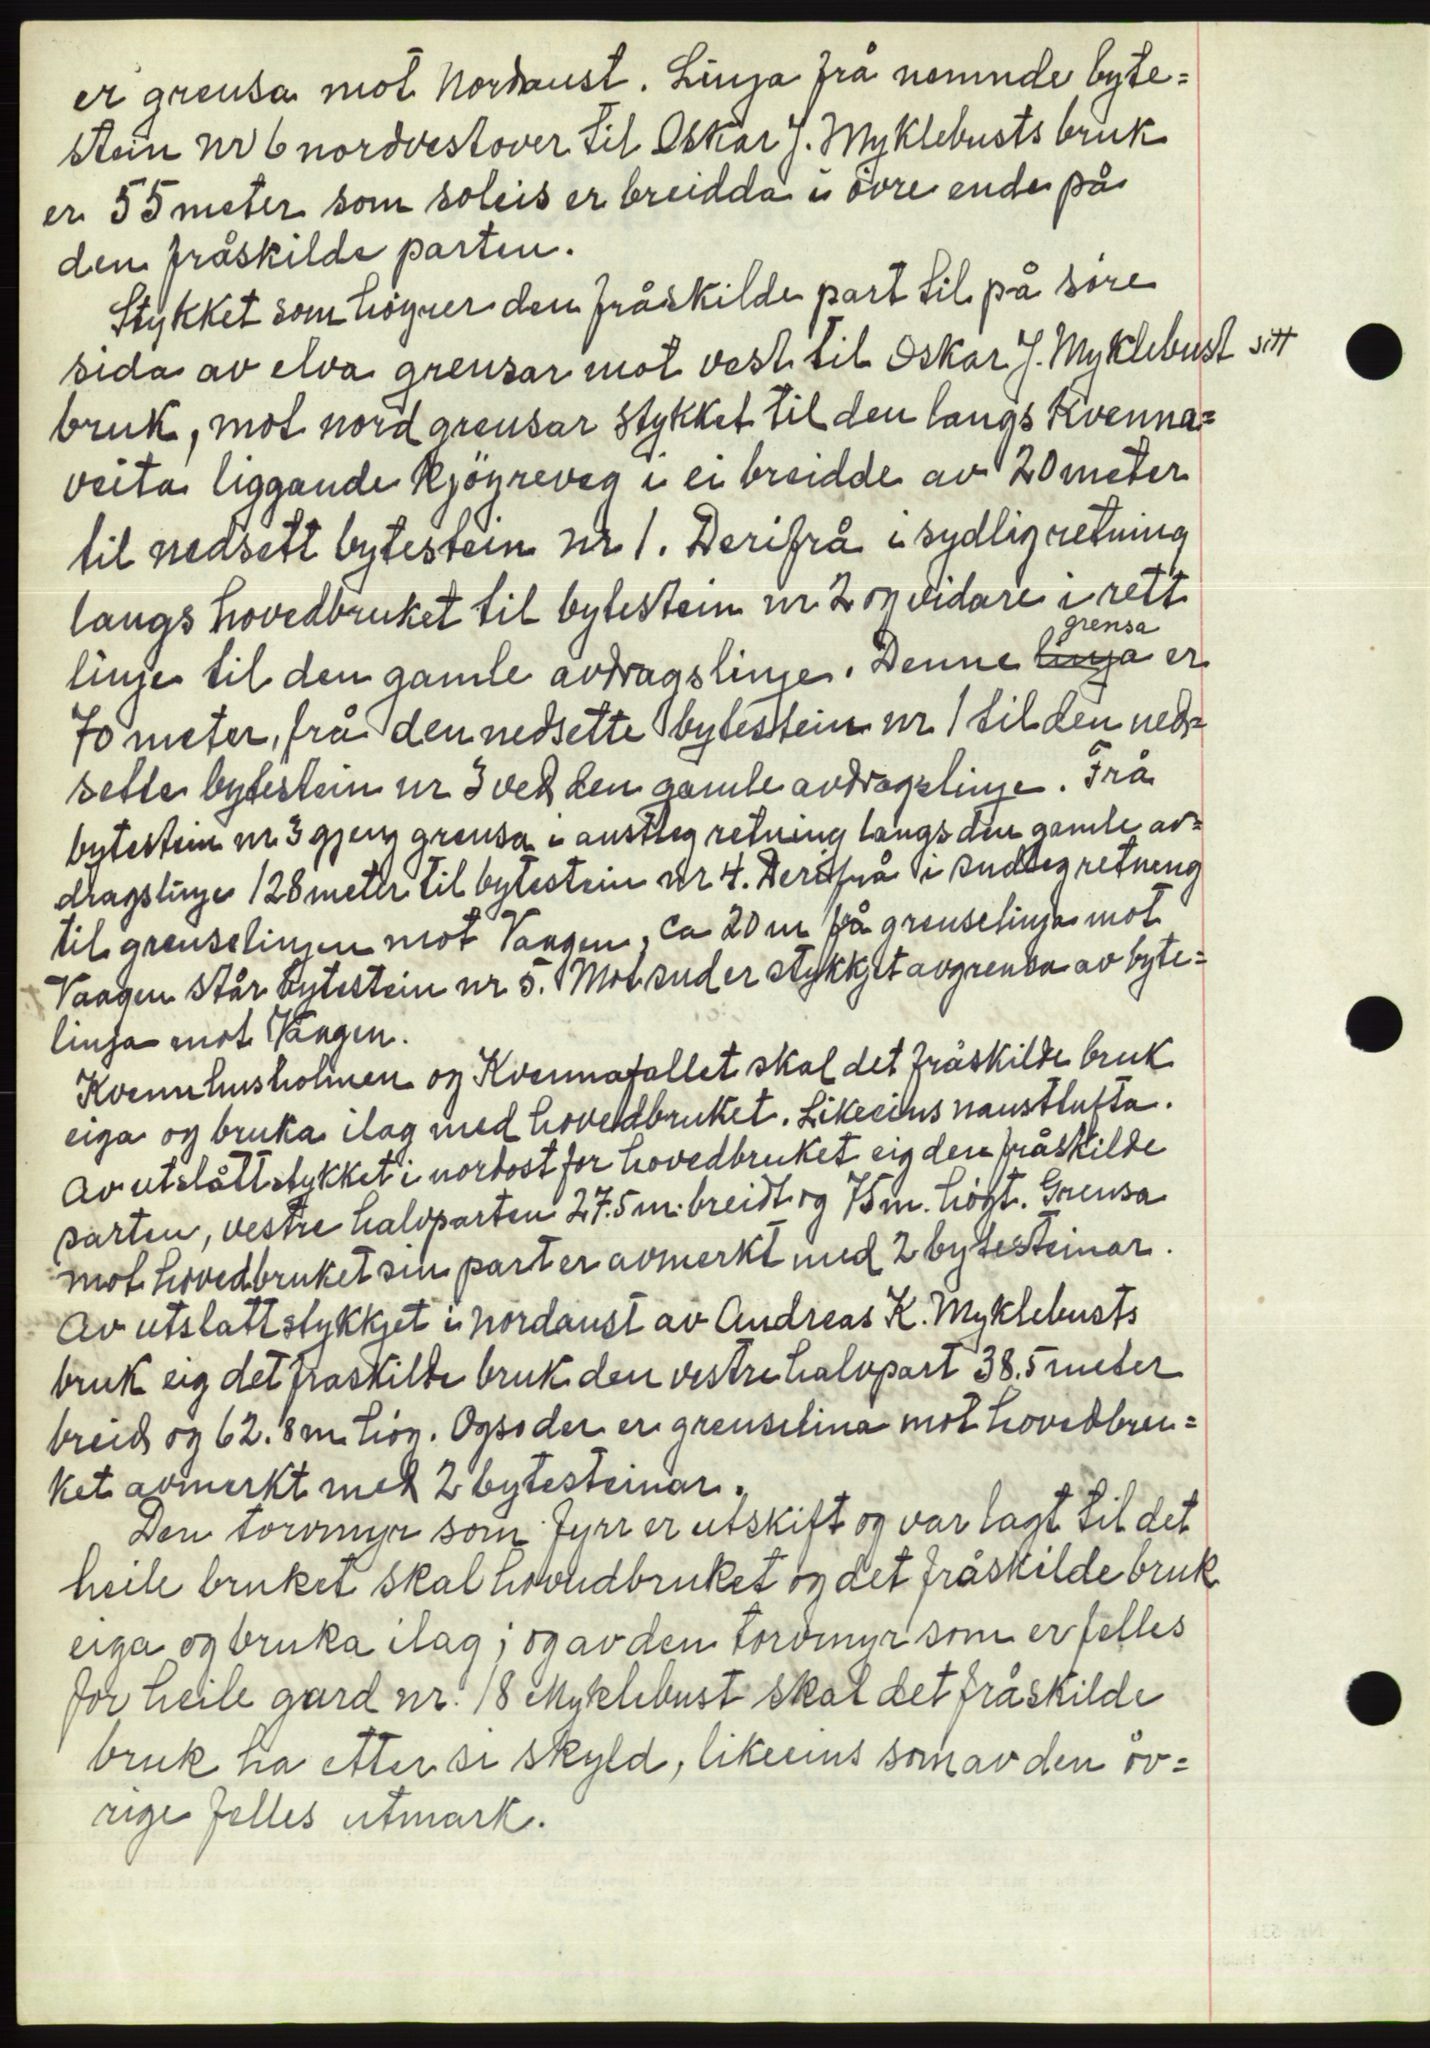 er grensa mot Nordaust. Linja frå nemnde byte=
stein nr 6 nordvestover til Oskar J. Myklebusts bruk
er 55 meter som soleis er breidda i övre ende på
den fråskilde parten.
Stykket som höyrer den fråskilde part til på söre
sida av elva grensar mot vest til Oskar J. Myklebust sitt
bruk, mot nord grensar stykket til den langs Kvenna=
veita liggande kjöyreveg i ei breidde av 20 meter
til nedsett bytestein nr 1. Derifrå i sydlig retning
langs hovedbruket til bytestein nr 2 og vidare i rett
linje til den gamle avdragslinje. Denne ~~linja~~ grensa er
70 meter, frå den nedsette bytestein nr 1 til den ned=
sette bytestein nr 3 ved den gamle avdragslinje. Frå
bytestein nr 3 gjeng grensa i austleg retning langs den gamle av=
dragslinje 128 meter til bytestein nr 4. Derifrå i sudleg retning
til grenselinjen mot Vaagen, ca 20 m frå grenselinja mot
Vaagen står bytestein nr 5. Mot sud er stykkjet avgrensa av byte=
linja mot Vaagen.
Kvennhusholmen og Kvennafallet skal det fråskilde bruk
eiga og bruka ilag med hovedbruket. Likeeins nausttufta.
Av utslåttstykket i nordost for hovedbruket eig den fråskilde
parten, vestre halvparten 27.5 m. breidt og 75 m. högt. Grensa
mot hovedbruket sin part er avmerkt med 2 bytesteinar.
Av utslattstykkjet i nordaust av Andreas K. Myklebusts
bruk eig det fraskilde bruk den vestre halvpart 38.5 meter
breid og 62.8 m hög. Ogso der er grenselina mot hovedbru=
ket avmerkt med 2 bytesteinar.
Den torvmyr som fyrr er utskift og var lagt til det
heile bruket skal hovudbruket og det fråskilde bruk
eiga og bruka ilag; og av den torvmyr som er felles
for heile gard nr. 18 Myklebust skal det fråskilde
bruk ha etter si skyld, likeeins som av den öv=
rige felles utmark.